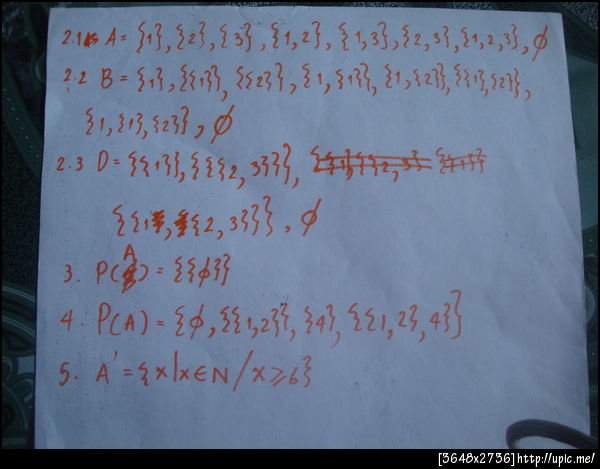 2.1 A = {1}, {2}, {3}, {1,2}, {1,3}, {2,3}, {1,2,3}, ∅
2.2 B = {1}, {{1}}, {{2}}, {1, {1}}, {1, {2}}, {{1}, {2}},
{1, {1}, {2}}, ∅
2.3 D = {{1}}, {{{2, 3}}},
{{1, {2, 3}}}, ∅
3. P(A) = {{∅}}
4. P(A) = {∅, {{1,2}}, {4}, {{1,2}, 4}}
5. A' = {x|x∈N/x≥6}
[3648x2736]http://upic.me/